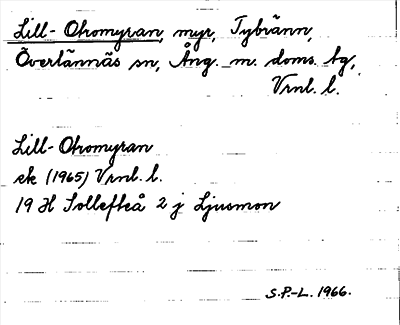 Lill-Otromyran, myr, Tybränn,
Överlännäs sn, Ång. m. doms. tg,
Vrnl. l.
Lill-Otromyran
ek (1965) Vrnl. l.
19 H Sollefteå 2 j Ljusmon
S.P.-L. 1966.